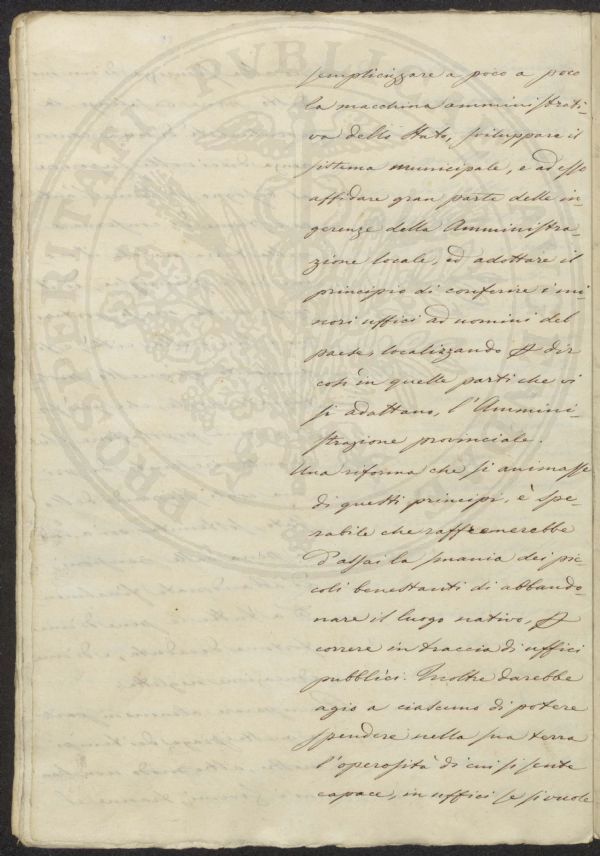 semplicizzare a poco a poco
la macchina amministrati-
va dello Stato, sviluppare il
sistema municipale, e ad esso
affidare gran parte delle in-
gerenze della Amministra-
zione locale, ed adottare il
principio di conferire i mi-
nori uffici ad uomini del
paese, localizzando p dir
così in quelle parti che vi
si adattano, l'Ammini-
strazione provinciale.
Una riforma che si animasse
di questi principj, è spe-
rabile che raffrenerebbe
d'assai la smania dei pic-
coli benestanti di abbando-
nare il luogo nativo, p
correre in traccia di uffici
pubblici. Inoltre darebbe
agio a ciascuno di potere
spendere nella sua terra
l'operosità di cui si sente
capace, in uffici se si vuole
PROSPERITATI PVBLICAE